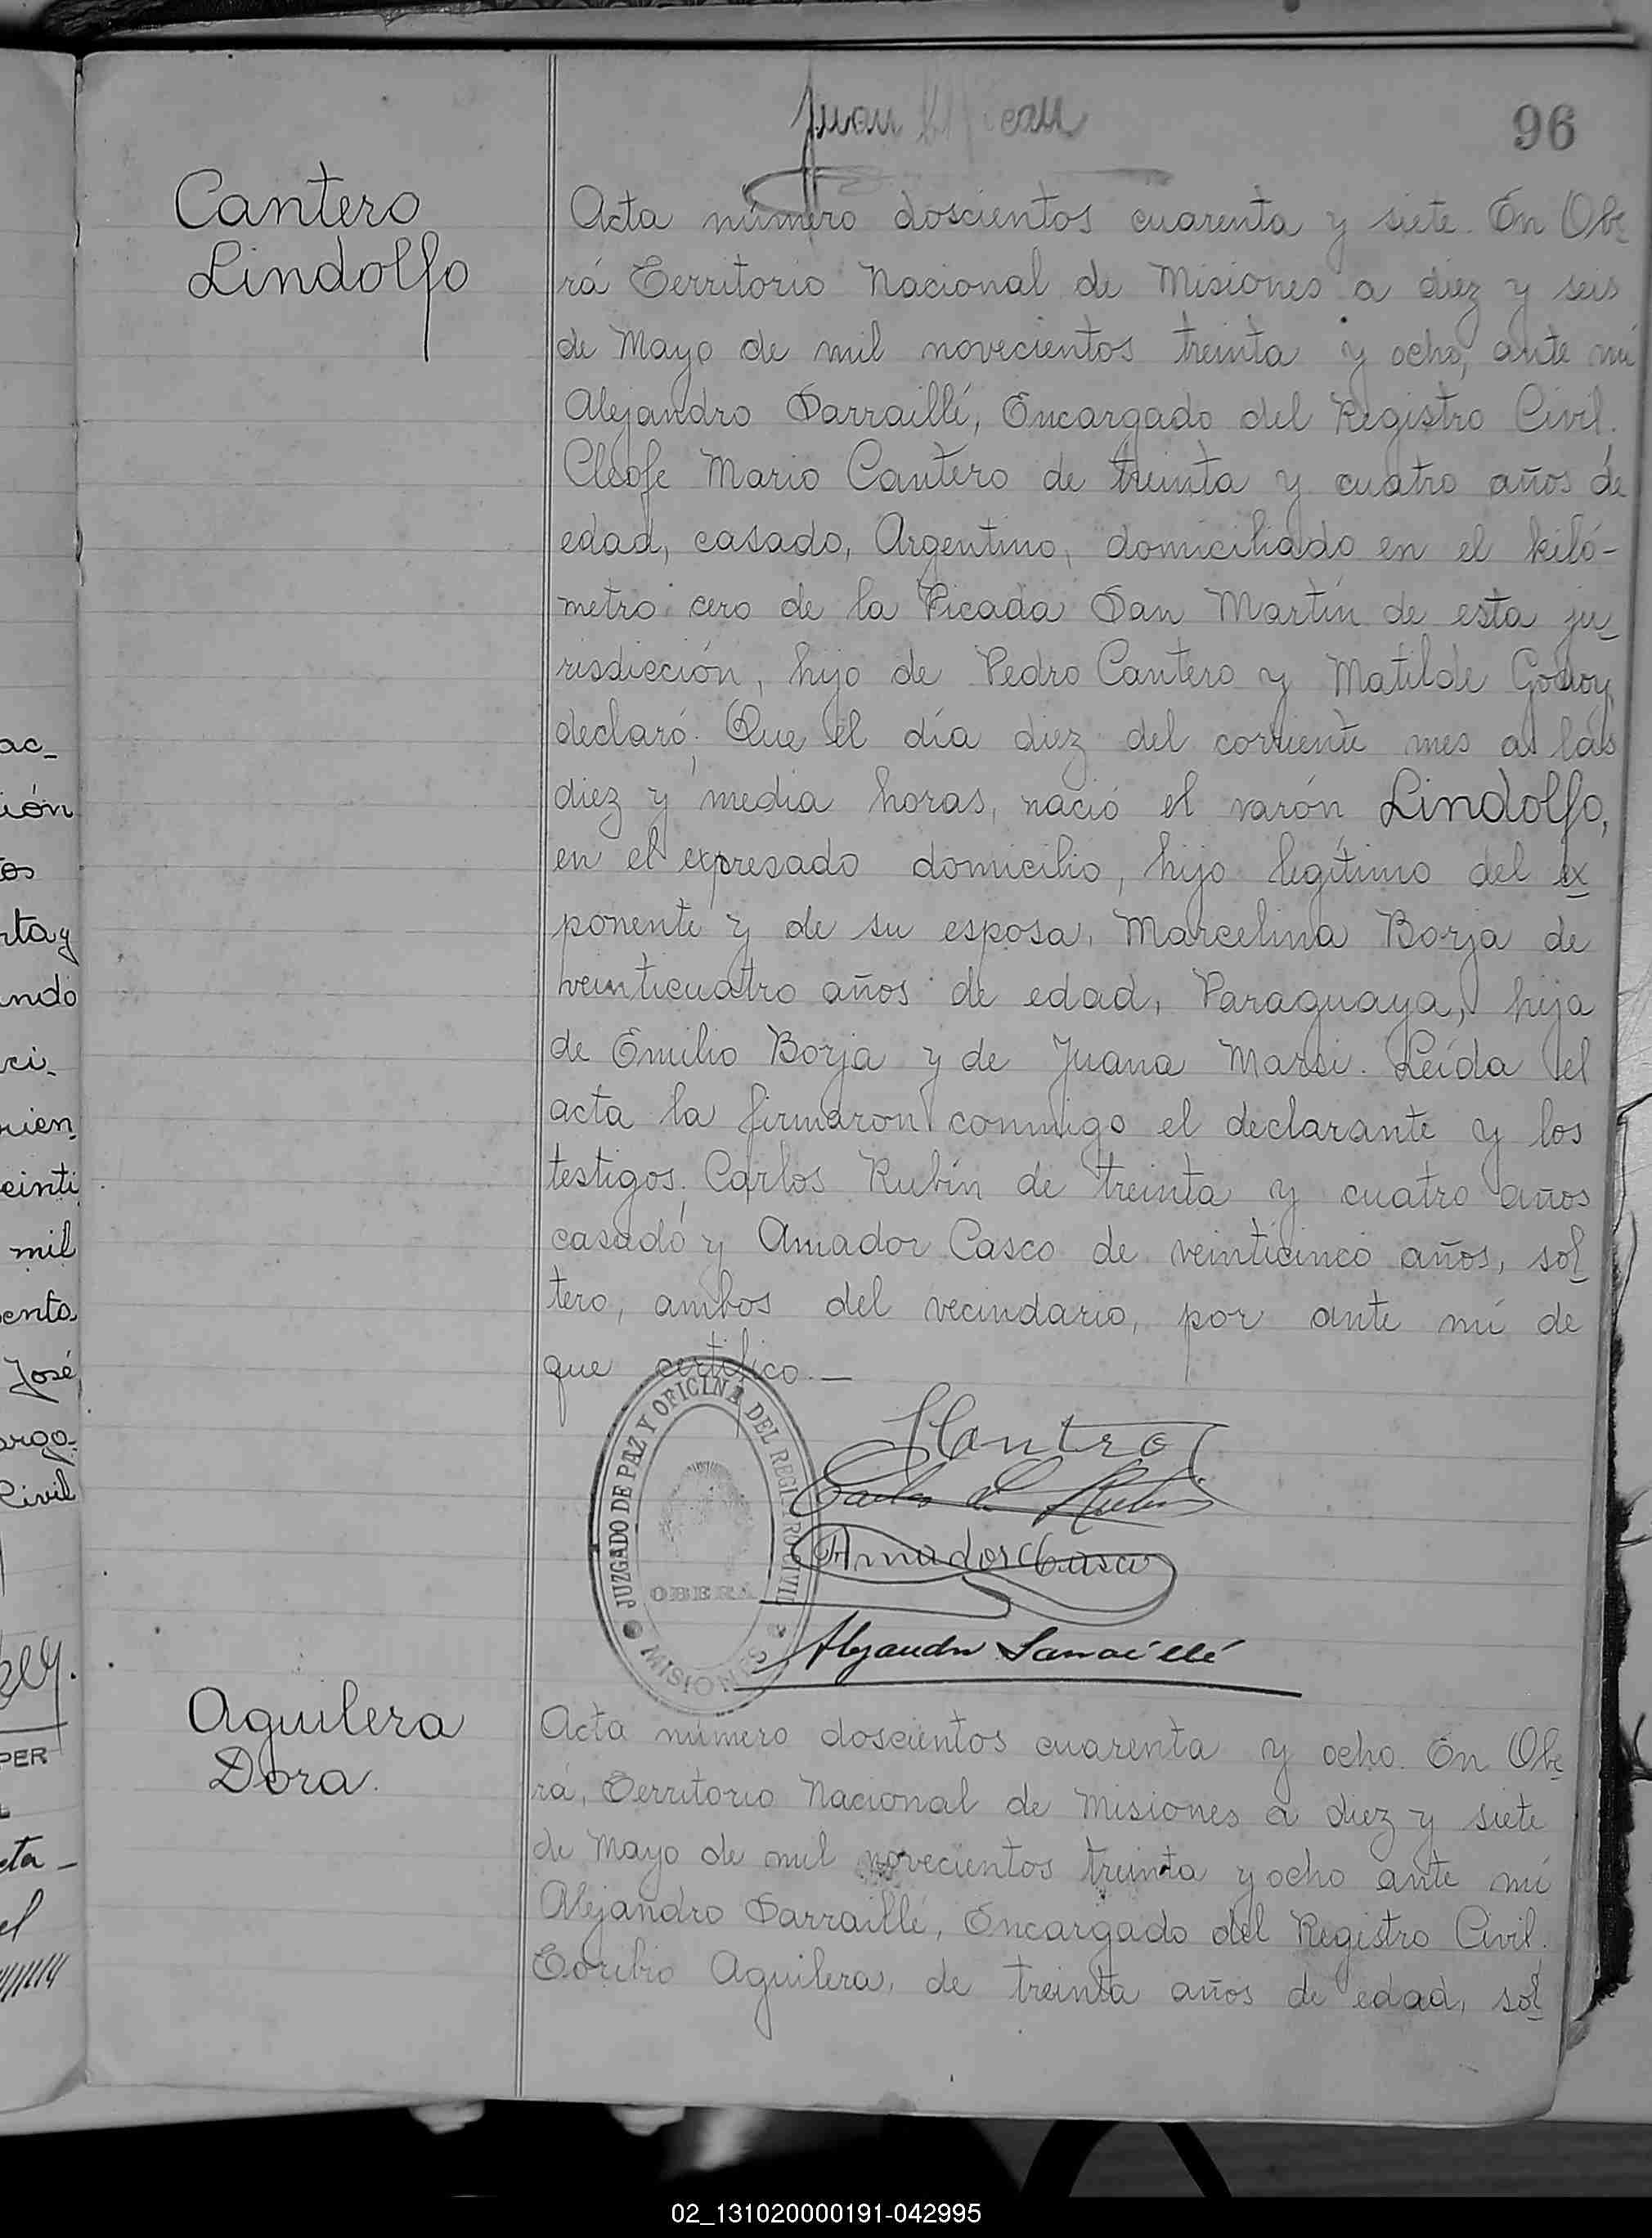 96
Juan
Cantero
Lindolfo
Acta número doscientos cuarenta y siete. En Obe
rá Territorio Nacional de Misiones a diez y seis
de Mayo de mil novecientos treinta y ocho, ante mí
Alejandro Sarraillé, Encargado del Registro Civil.
Cleofe Mario Cantero de treinta y cuatro años de
edad, casado, Argentino, domiciliado en el kiló-
metro cero de la Picada San Martín de esta ju_
risdicción, hijo de Pedro Cantero y Matilde Godoy
declaró: Que el día diez del corriente mes a las
diez y media horas, nació el varón Lindolfo,
en el expresado domicilio, hijo legítimo del ex
ponente y de su esposa, Marcelina Borja de
veinticuatro años de edad, Paraguaya, hija
de Emilio Borja y de Juana Marsi. Leída el
acta la firmaron conmigo el declarante y los
testigos, Carlos Rubín de treinta y cuatro años
casado y Amador Casco de veinticinco años, sol
tero, ambos del vecindario, por ante mí de
que certifico.—
JUZGADO DE PAZ Y OFICINA DEL REGISTRO CIVIL
OBERA
MISIONES
Amador Casco
Alejandro Sarraillé
Aguilera
Dora.
Acta número doscientos cuarenta y ocho. En Obe
rá, Territorio Nacional de Misiones a diez y siete
de Mayo de mil novecientos treinta y ocho ante mí
Alejandro Sarraillé, Encargado del Registro Civil.
Toribio Aguilera, de treinta años de edad, sol
ac_
ión
os
rta y
ndo
ci_
rien
einti
mil
ento
José
argo_
Civil
PER
eta_
el
02_131020000191-042995